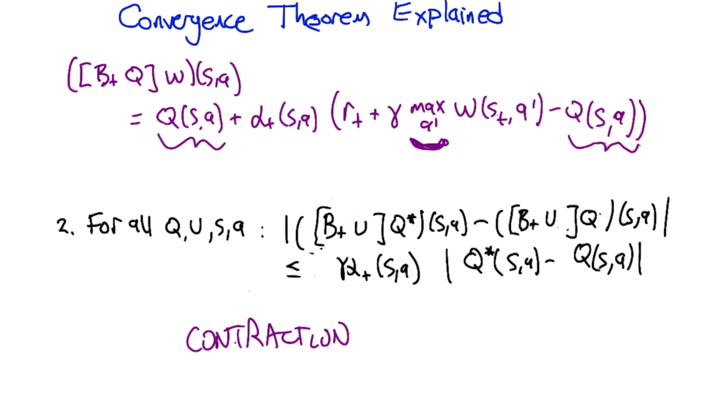 Convergence Theorem Explained
([B_t Q] W)(s,a)
= Q(s,a) + α_t(s,a) (r_t + γ max_{a'} W(s_t, a') - Q(s,a))
2. For all Q,U,s,a : |([B_t U]Q*)(s,a) - ([B_t U]Q)(s,a)|
≤ γα_t(s,a) |Q*(s,a) - Q(s,a)|
CONTRACTION